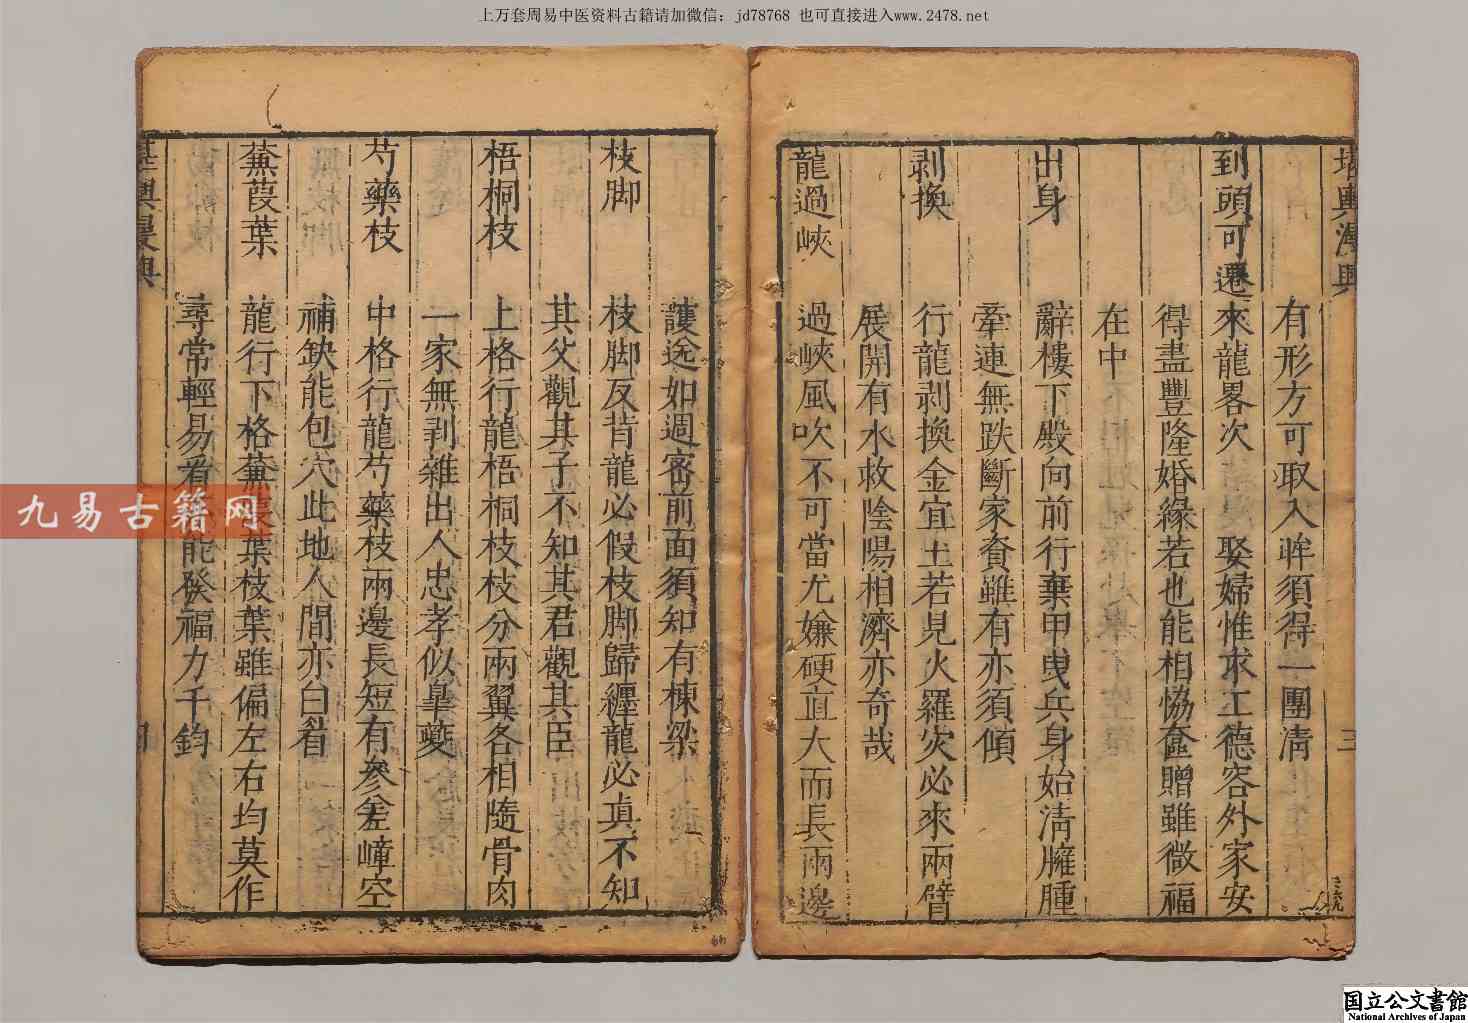 上万套周易中医资料古籍请加微信：jd78768 也可直接进入www.2478.net
堪輿漫興 三
有形方可取入眸須得一團清
到頭可遷 來龍畧次 娶婦惟求工德容外家安
得盡豐隆婚緣若也能相恊奩贈雖微福
在中
出身 辭樓下殿向前行棄甲曳兵身始清臃腫
牽連無跌斷家資雖有亦須傾
剥換 行龍剥換金宜土若見火羅灾必來兩臂
展開有水救陰陽相濟亦奇哉
龍過峽 過峽風吹不可當尤嫌硬直大而長兩邊
護送如週密前面須知有棟梁
枝脚 枝脚反背龍必假枝脚歸纒龍必真不知
其父觀其子不知其君觀其臣
梧桐枝 上格行龍梧桐枝枝分兩翼各相隨骨肉
一家無剥雜出人忠孝似臯夔
芍藥枝 中格行龍芍藥枝兩邊長短有參差嶂空
補缺能包穴此地人間亦白眉
蒹葭葉 龍行下格蒹葭葉枝葉雖偏左右均莫作
尋常輕易看 能發福力千鈞
堪輿漫興 四
九易古籍网
国立公文書館
National Archives of Japan